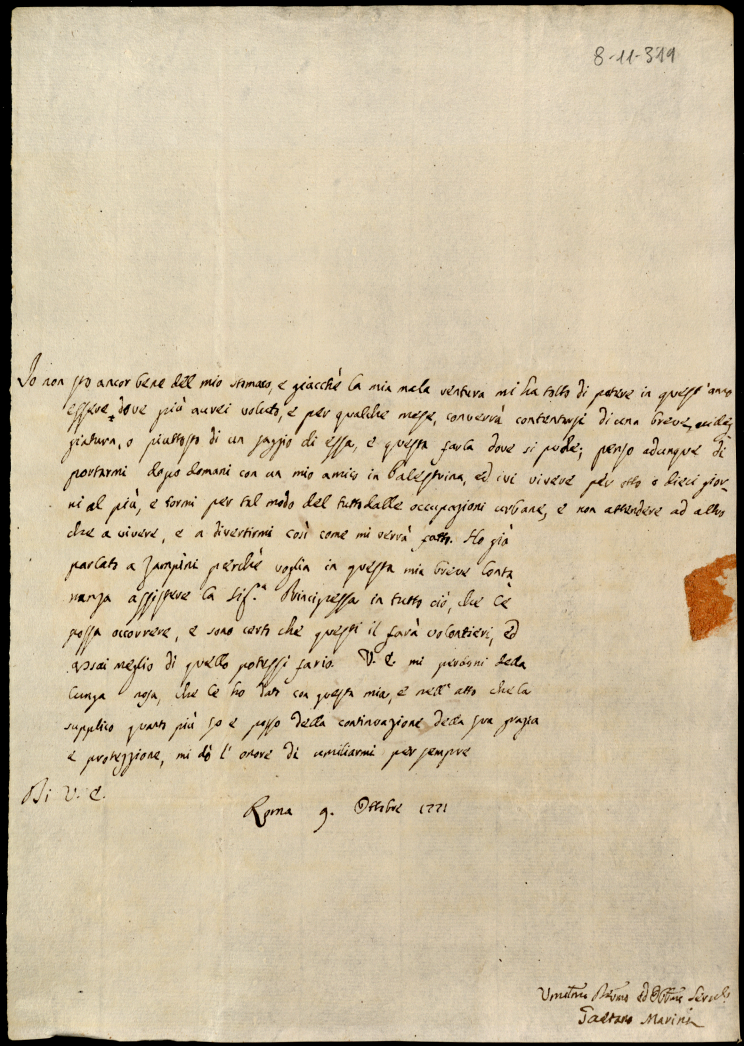 8-11-319
Io non sto ancor bene del mio stomaco, e giacchè la mia mala ventura mi ha tolto di potere in quest'anno
essere dove più avrei voluto, e per qualche mese, converrà contentarsi di una breve villeg
giatura, o piuttosto di un saggio di essa, e questa farla dove si puole; penso adunque di
portarmi dopo domani con un mio amico in Palestrina, ed ivi vivere per otto o dieci gior-
ni al più, e tormi per tal modo del tutto dalle occupazioni urbane, e non attendere ad altro
che a vivere, e a divertirmi così come mi verrà fatto. Ho già
parlato a Zampini perchè voglia in questa mia breve lonta
nanza assistere la Sig.ª Principessa in tutto ciò, che le
possa occorrere, e sono certo che questi il farà volontieri, ed
assai meglio di quello potessi far io. V. E. mi perdoni della
lunga noja, che le ho dato con questa mia, e nell'atto che la
supplico quanto più so e posso della continuazione della sua grazia
e protezzione, mi dò l'onore di umiliarmi per sempre
Di V. E.
Roma 9. Ottobre 1771
Gaetano Marini